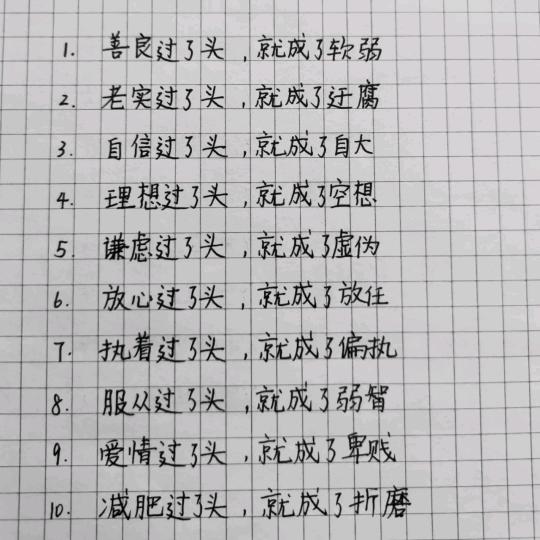 1. 善良过了头，就成了软弱
2. 老实过了头，就成了迂腐
3. 自信过了头，就成了自大
4. 理想过了头，就成了空想
5. 谦虑过了头，就成了虚伪
6. 放心过了头，就成了放任
7. 执着过了头，就成了偏执
8. 服从过了头，就成了弱智
9. 爱情过了头，就成了卑贱
10. 减肥过了头，就成了折磨